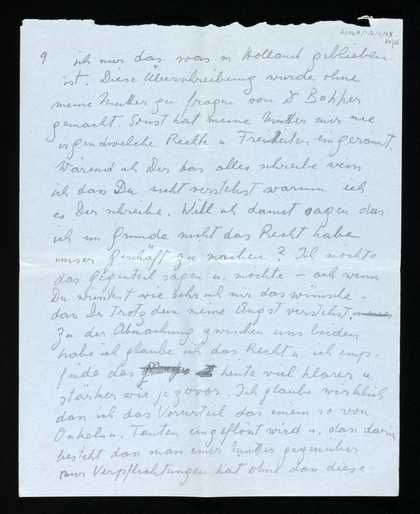 9 ich nur das was in Holland geblieben
ist. Diese Überschreibung wurde ohne
meine Mutter zu fragen von Dr
gemacht. Sonst hat meine Mutter mir nie
irgendwelche Rechte u. Freiheiten eingeräumt.
Wärend ich Dir das alles schreibe weiss
ich das Du nicht verstehst warum ich
es Dir schreibe. Will ich damit sagen das
ich im Grunde nicht das Recht habe
unser Geschäft zu machen? Ich möchte
das gegenteil sagen u. möchte – auch wenn
Du wie sehr ich mir das wünsche –
das Du trotzdem meine Angst verstehst
Zu der Abmachung zwischen uns beiden
habe ich glaube ich das Recht u. ich emp-
finde das heute viel klarer u
stärker wie je zuvor. Ich glaube wirklich
dan ich das Vorurteil das einem so von
Onkeln u. Tanten eingeflösst wird u. dan darin
besteht dan man einer Mutter gegenüber
nur Verpflichtungen hat ohne dan diese